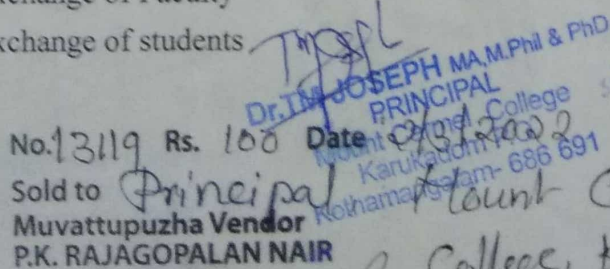 xchange of students
Dr. T.M JOSEPH MA, M.Phil & PhD
PRINCIPAL
Mount Carmel College
Karukadom P.O
Kothamangalam- 686 691
No. 13119 Rs. 100 Date 2022
Sold to Principal Mount C
Muvattupuzha Vendor
P.K. RAJAGOPALAN NAIR
College,